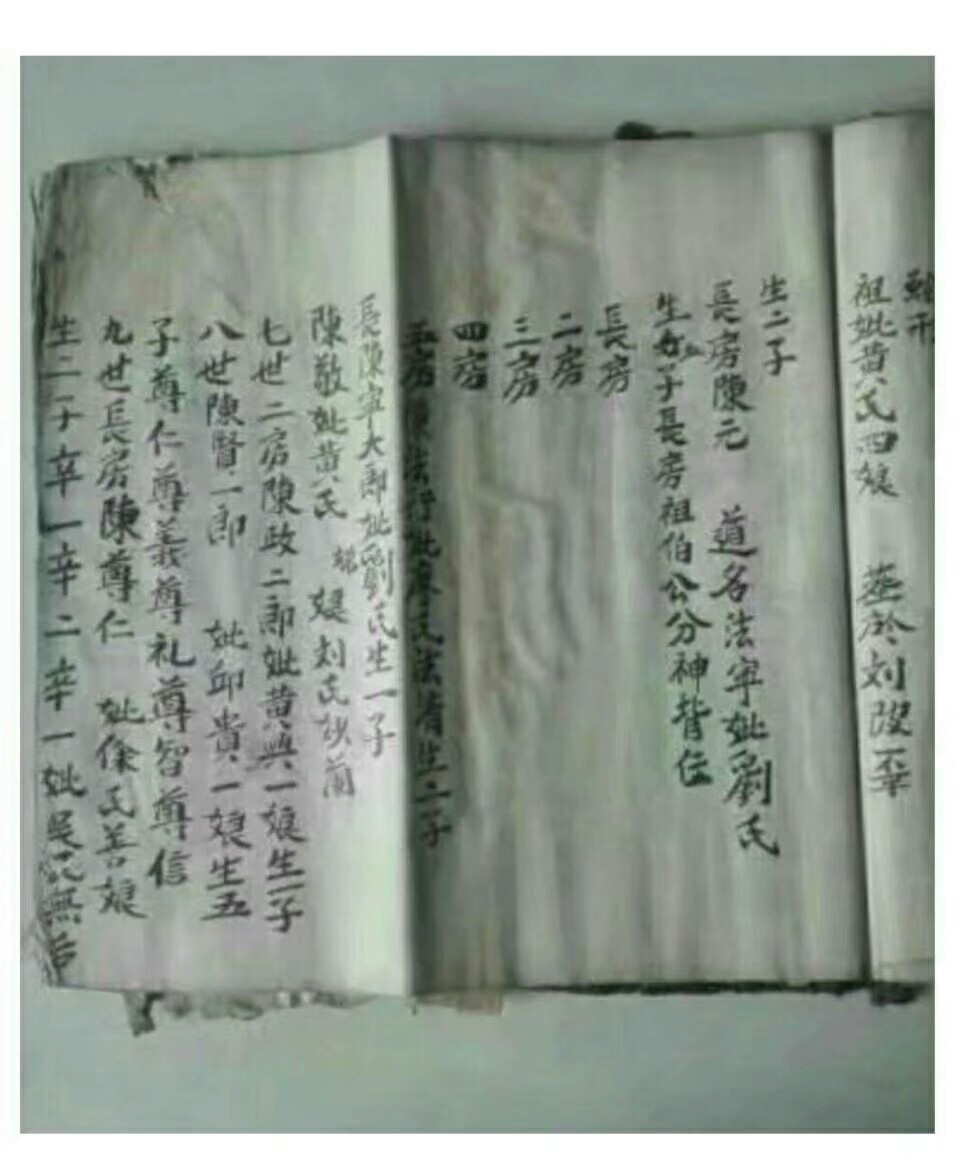 祖妣黄氏四娘 葬於刘
生二子
長房陳元 道名法寕妣劉氏
生子長房祖伯公分神背住
長房
二房
三房
四房
五房陳法行妣廖氏法清生二子
長陳寕大郎妣劉氏生一子
陳敬妣黄氏 娘刘氏
七世二房陳政二郎妣黄與一娘生一子
八世陳賢一郎 妣邱貴一娘生五
子尊仁尊義尊礼尊智尊信
九世長房陳尊仁 妣徐氏善娘
生二子辛一辛二辛一妣吴氏無后